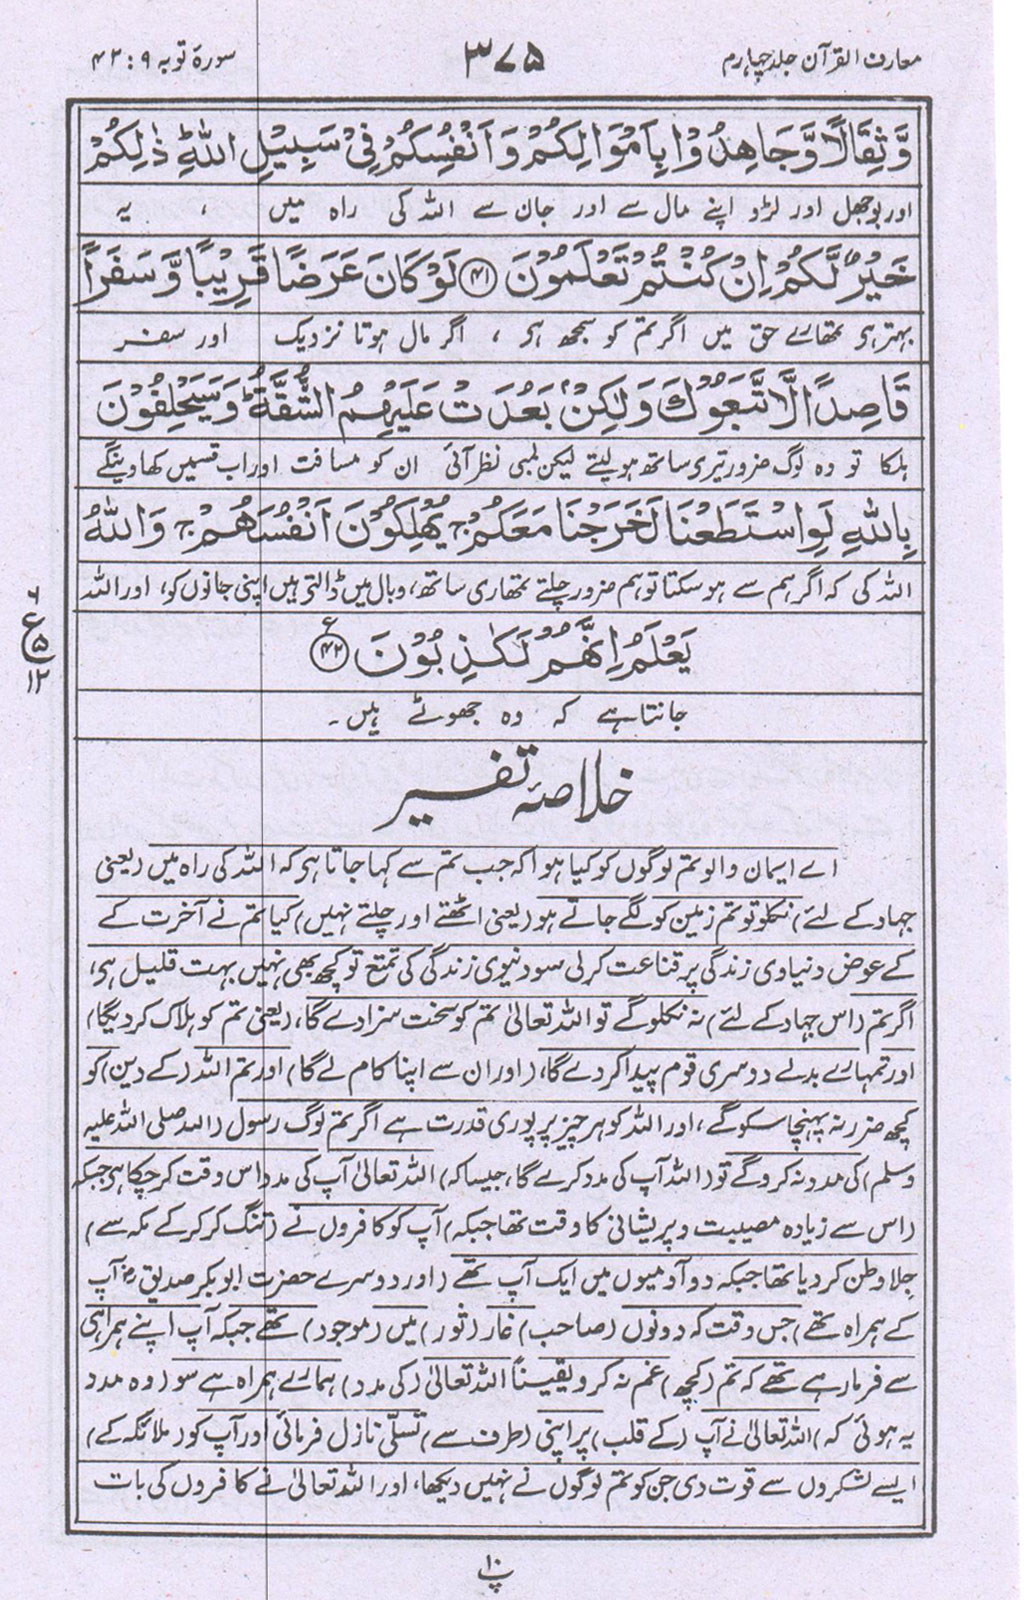 معارف القرآن جلد چہارم ۳۷۵ سورۃ توبہ ۹ : ۴۲
وَّ ثِقَالًا وَّ جَاهِدُوْا بِاَمْوَالِكُمْ وَ اَنْفُسِكُمْ فِيْ سَبِيْلِ اللّٰهِ ؕ ذٰلِكُمْ
اور بوجھل اور لڑو اپنے مال سے اور جان سے اللہ کی راہ میں ، یہ
خَيْرٌ لَّكُمْ اِنْ كُنْتُمْ تَعْلَمُوْنَ ﴿۴۱﴾ لَوْ كَانَ عَرَضًا قَرِيْبًا وَّ سَفَرًا
بہتر ہی تمھارے حق میں اگر تم کو سمجھ ہی ، اگر مال ہوتا نزدیک اور سفر
قَاصِدًا لَّاتَّبَعُوْكَ وَ لٰكِنْۢ بَعُدَتْ عَلَيْهِمُ الشُّقَّةُ ؕ وَ سَيَحْلِفُوْنَ
ہلکا تو وہ لوگ ضرور تیری ساتھ ہو لیتے لیکن لمبی نظر آئی ان کو مسافت اور اب قسمیں کھاوینگے
بِاللّٰهِ لَوِ اسْتَطَعْنَا لَخَرَجْنَا مَعَكُمْ ۚ يُهْلِكُوْنَ اَنْفُسَهُمْ ۚ وَ اللّٰهُ
اللہ کی کہ اگر ہم سے ہو سکتا تو ہم ضرور چلتے تمھاری ساتھ، وبال میں ڈالتی ہیں اپنی جانوں کو، اور اللہ
يَعْلَمُ اِنَّهُمْ لَكٰذِبُوْنَ ﴿۴۲﴾ ع
۶ ع ۵ ۱۲
جانتا ہے کہ وہ جھوٹے ہیں ۔
خلاصۂ تفسیر
اے ایمان والو تم لوگوں کو کیا ہوا کہ جب تم سے کہا جاتا ہی کہ اللہ کی راہ میں (یعنی
جہاد کے لئے) نکلو تو تم زمین کو لگے جاتے ہو (یعنی اٹھتے اور چلتے نہیں) کیا تم نے آخرت کے
کے عوض دنیاوی زندگی پر قناعت کر لی سو دنیوی زندگی کی تمتع تو کچھ بھی نہیں بہت قلیل ہی،
اگر تم (اس جہاد کے لئے) نہ نکلو گے تو اللہ تعالیٰ تم کو سخت سزا دے گا، (یعنی تم کو ہلاک کر دیگا)
اور تمہارے بدلے دوسری قوم پیدا کر دے گا، (اور ان سے اپنا کام لے گا) اور تم اللہ (کے دین) کو
کچھ ضرر نہ پہنچا سکو گے، اور اللہ کو ہر چیز پر پوری قدرت ہے اگر تم لوگ رسول (اللہ صلی اللہ علیہ
وسلم) کی مدد نہ کرو گے تو (اللہ آپ کی مدد کرے گا، جیسا کہ) اللہ تعالیٰ آپ کی مدد اس وقت کر چکا ہی جبکہ
(اس سے زیادہ مصیبت و پریشانی کا وقت تھا جبکہ) آپ کو کافروں نے (تنگ کر کرکے مکہ سے)
جلا وطن کر دیا تھا جبکہ دو آدمیوں میں ایک آپ تھے (اور دوسرے حضرت ابو بکر صدیق رض آپ
کے ہمراہ تھے) جس وقت کہ دونوں (صاحب) غار (ثور) میں (موجود) تھے جبکہ آپ اپنے ہمراہی
سے فرما رہے تھے کہ تم (کچھ) غم نہ کرو یقیناً اللہ تعالیٰ (کی مدد) ہمارے ہمراہ ہے سو (وہ مدد
یہ ہوئی کہ) اللہ تعالیٰ نے آپ (کے قلب) پر اپنی (طرف سے) تسلّی نازل فرمائی اور آپ کو (ملائکہ کے)
ایسے لشکروں سے قوت دی جن کو تم لوگوں نے نہیں دیکھا، اور اللہ تعالیٰ نے کافروں کی بات
پ ۱۰